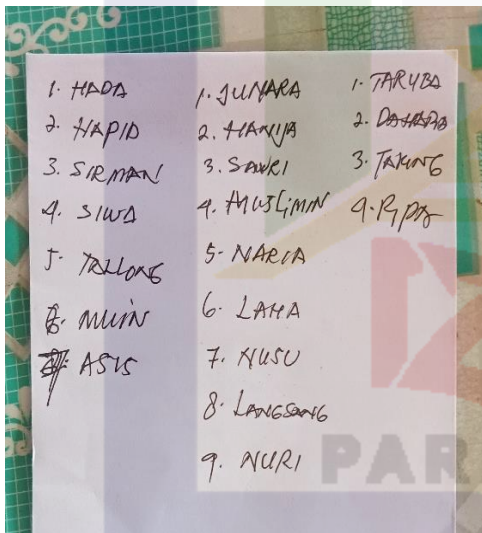 1. HADA
2. HAPID
3. SIRMAN
4. SIWA
5. TALLONG
6. MUIN
7. ASIS
1. JUNARA
2. HANIJA
3. SAWRI
4. MUSLIMIN
5. NARIA
6. LAHA
7. NUSU
8. LANGSANG
9. NURI
1. TARUBA
2. DAHARA
3. TAKING
4.
PAR